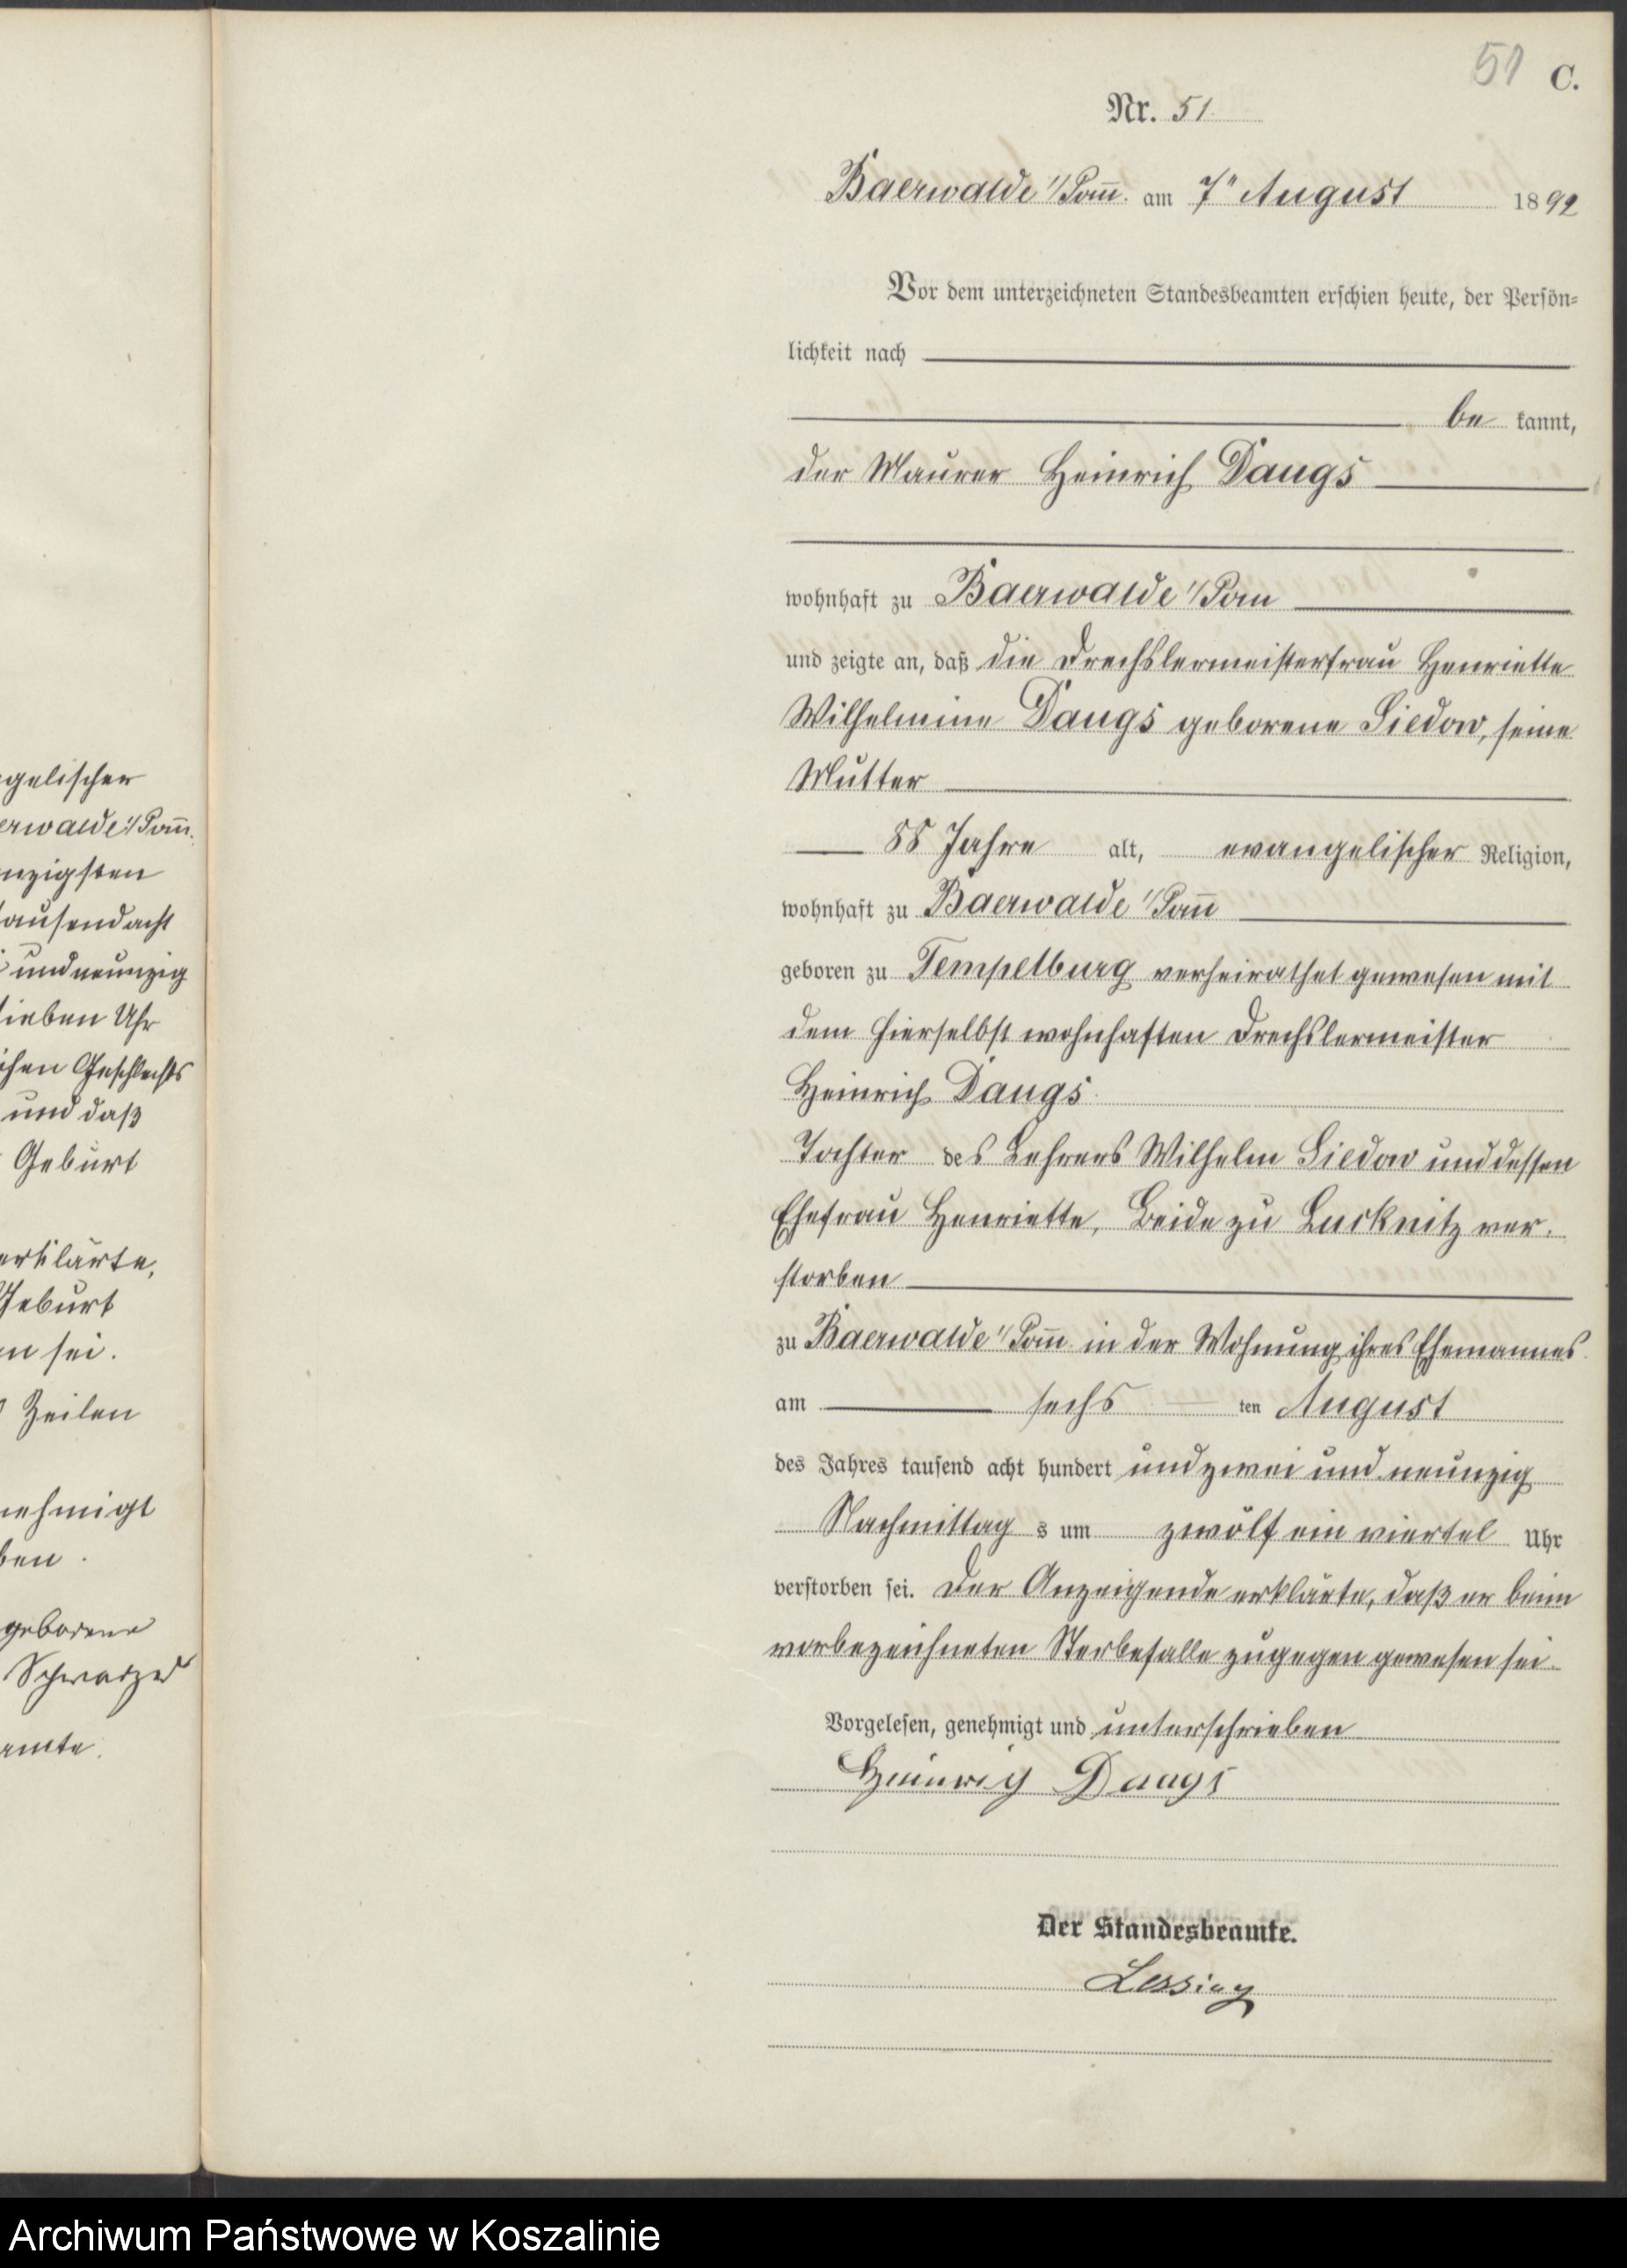 gelischer
erwalde i/Pom̄.
nzigsten
tausend acht
und neunzig
sieben Uhr
chen Geschlechts
und daß
Geburt
erklärte,
Geburt
n sei.
Zeilen
nehmigt
ben.
geborene
Schwarzed
amte.
51 C.
Nr. 51.
Baerwalde i/Pom̄. am 7ⁿ August 1892
Vor dem unterzeichneten Standesbeamten erschien heute, der Persön=
lichkeit nach
be kannt,
der Maurer Heinrich Daugs
wohnhaft zu Baerwalde i/Pom
und zeigte an, daß die Drechslermeisterfrau Henriette
Wilhelmine Daugs geborene Liedow, seine
Mutter
58 Jahre alt, evangelischer Religion,
wohnhaft zu Baerwalde i/Pom̄
geboren zu Tempelburg verheirathet gewesen mit
dem hierselbst wohnhaften Drechslermeister
Heinrich Daugs.
Tochter des Lehrers Wilhelm Liedow und dessen
Ehefrau Henriette, Beide zu Lucknitz ver.
storben
zu Baerwalde i/Pom̄. in der Wohnung ihres Ehemannes
am sechs ten August
des Jahres tausend acht hundert und zwei und neunzig
Nachmittag s um zwölf ein viertel Uhr
verstorben sei. Der Anzeigende erklärte, daß er beim
vorbezeichneten Sterbefalle zugegen gewesen sei.
Vorgelesen, genehmigt und unterschrieben
Heinrich Daugs
Der Standesbeamte.
Lessing
Archiwum Państwowe w Koszalinie